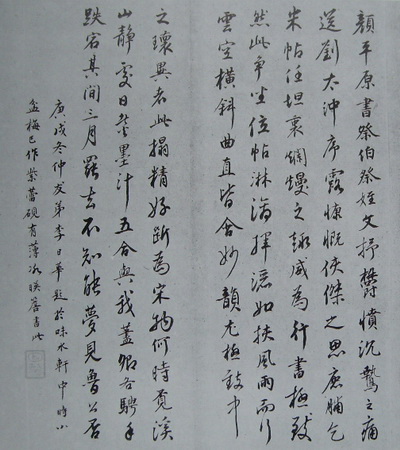 顏平原書祭伯祭姪文抒鬱憤沉鷙之痛
送劉太沖序露慷慨俠傑之思鹿脯乞
米帖任坦衷爛熳之趣咸為行書極致
然此爭坐位帖淋漓揮灑如挾風雨而行
雲空橫斜曲直皆含妙韻尤極致中
之瓌異者此搨精好斷為宋物何時覓溪
山靜處日墨汁五合與我蓋卿各騁手
跌宕其間三月罷去不知能夢見魯公否
庚戌冬仲友弟李日華題於味水軒中時小
盆梅已作紫蕾硯有薄冰映簷書此